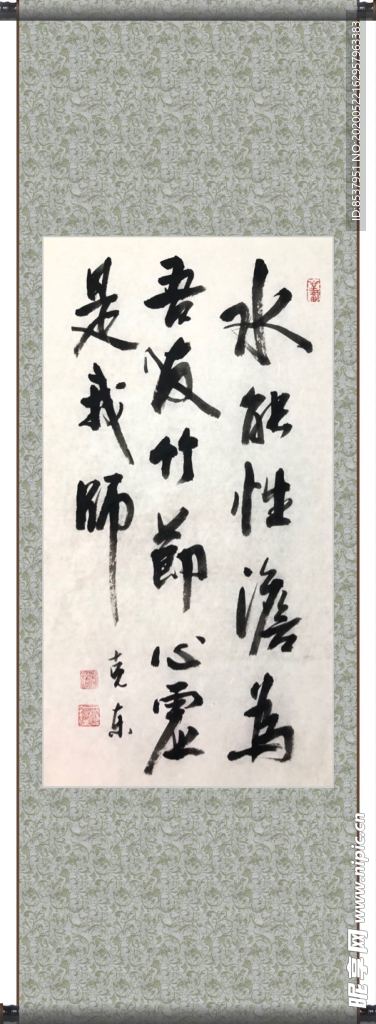 水能性澹為
吾友竹節心虛
是我師
克东
ID:8537951 NO.20200522162957963383
昵享网 www.nipic.cn